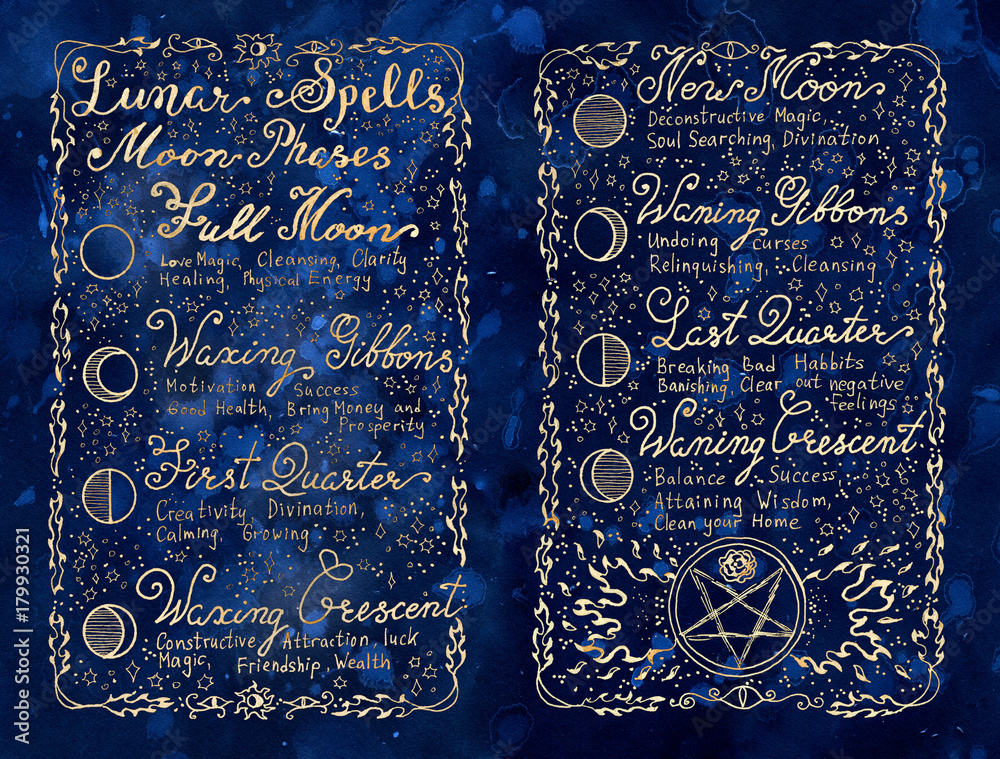 Lunar Spells
Moon Phases
Full Moon
Love Magic, Cleansing, Clarity
Healing, Physical Energy
Waxing Gibbons
Motivation Success
Good Health, Bring Money and
Prosperity
First Quarter
Creativity Divination,
Calming, Growing
Waxing Crescent
Constructive Attraction, luck
Magic, Friendship, Wealth
New Moon
Deconstructive Magic,
Soul Searching, Divination
Waning Gibbons
Undoing Curses
Relinquishing, Cleansing
Last Quarter
Breaking Bad Habbits
Banishing, Clear out negative
feelings
Waning Crescent
Balance Success,
Attaining Wisdom,
Clean your Home
Adobe Stock | #179930321
Adobe Stock